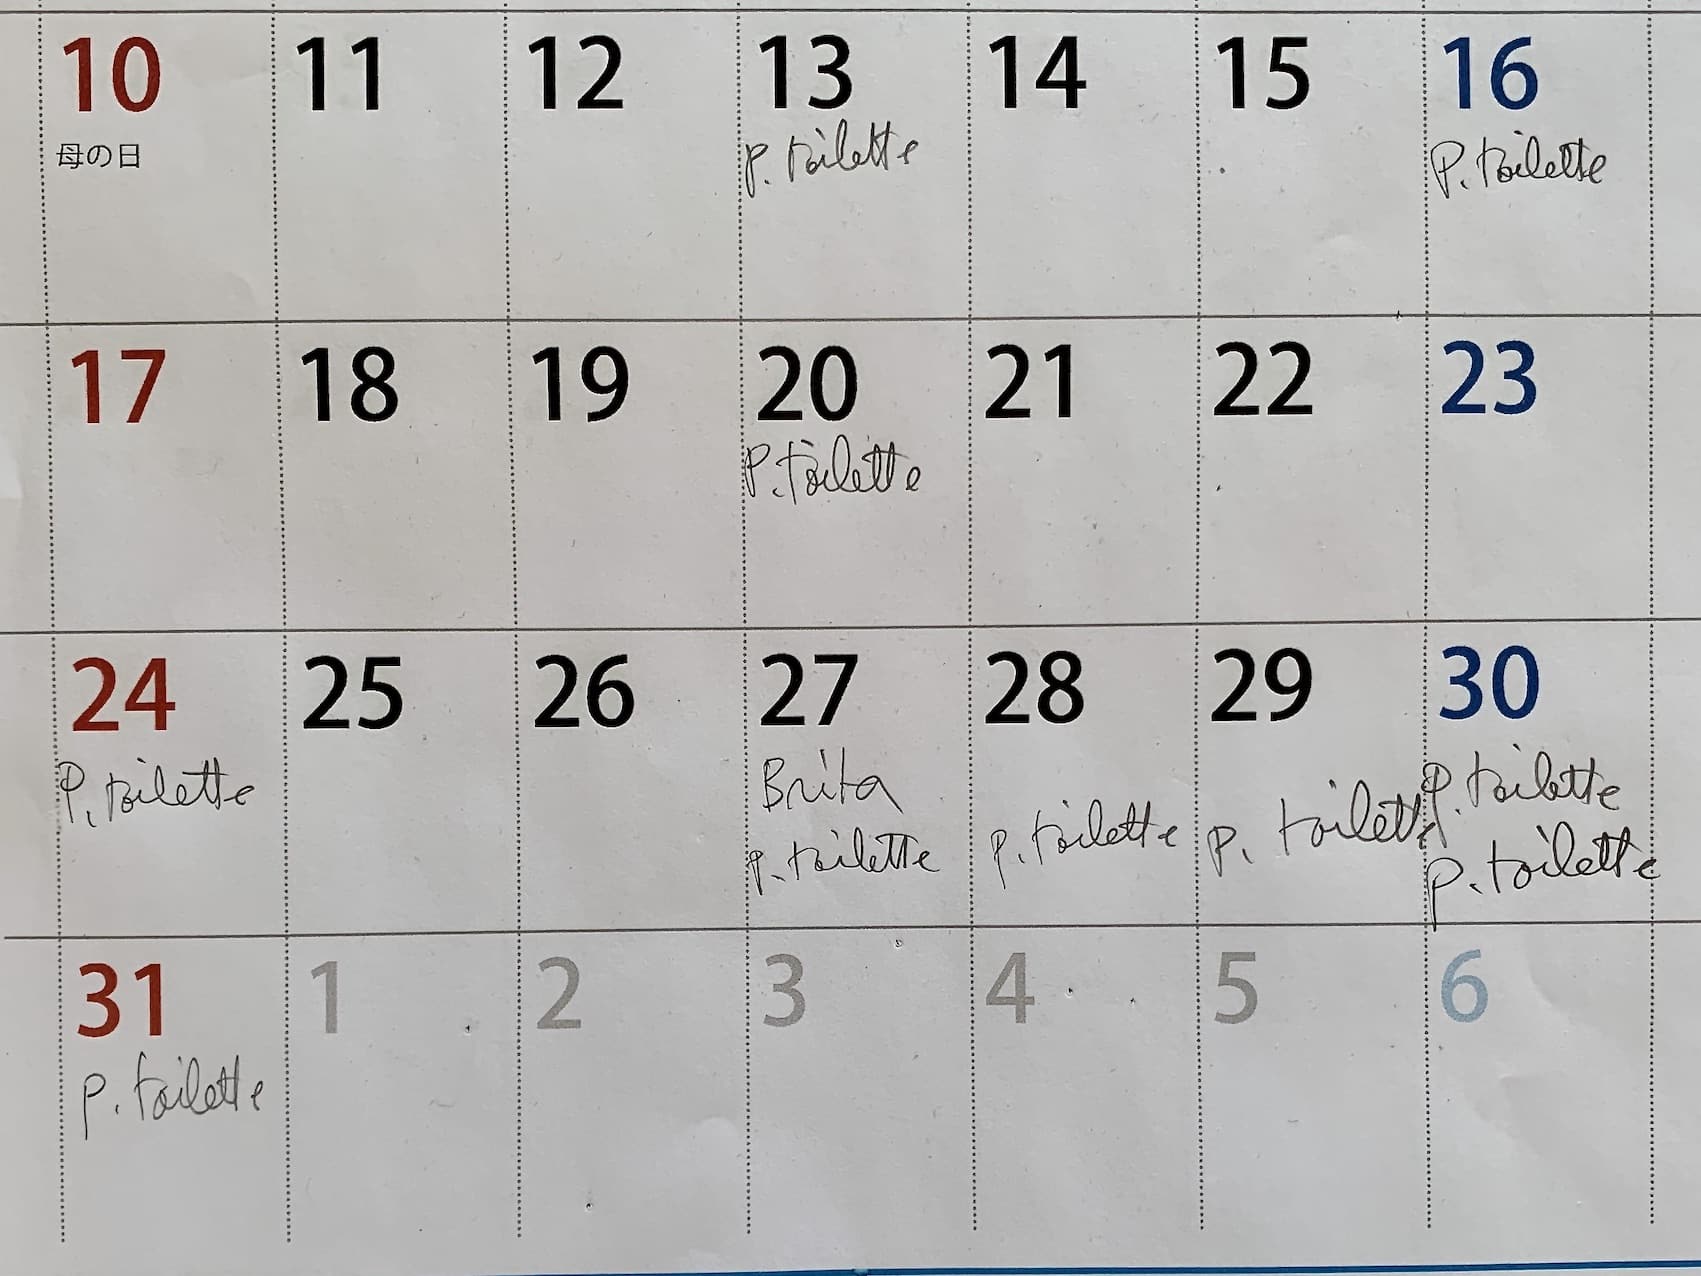 10 11 12 13 14 15 16
母の日
p. toilette P. toilette
17 18 19 20 21 22 23
P. toilette
24 25 26 27 28 29 30
P. toilette Brita P. toilette
p. toilette p. toilette p. toilette p. toilette
31 1 2 3 4 5 6
p. toilette